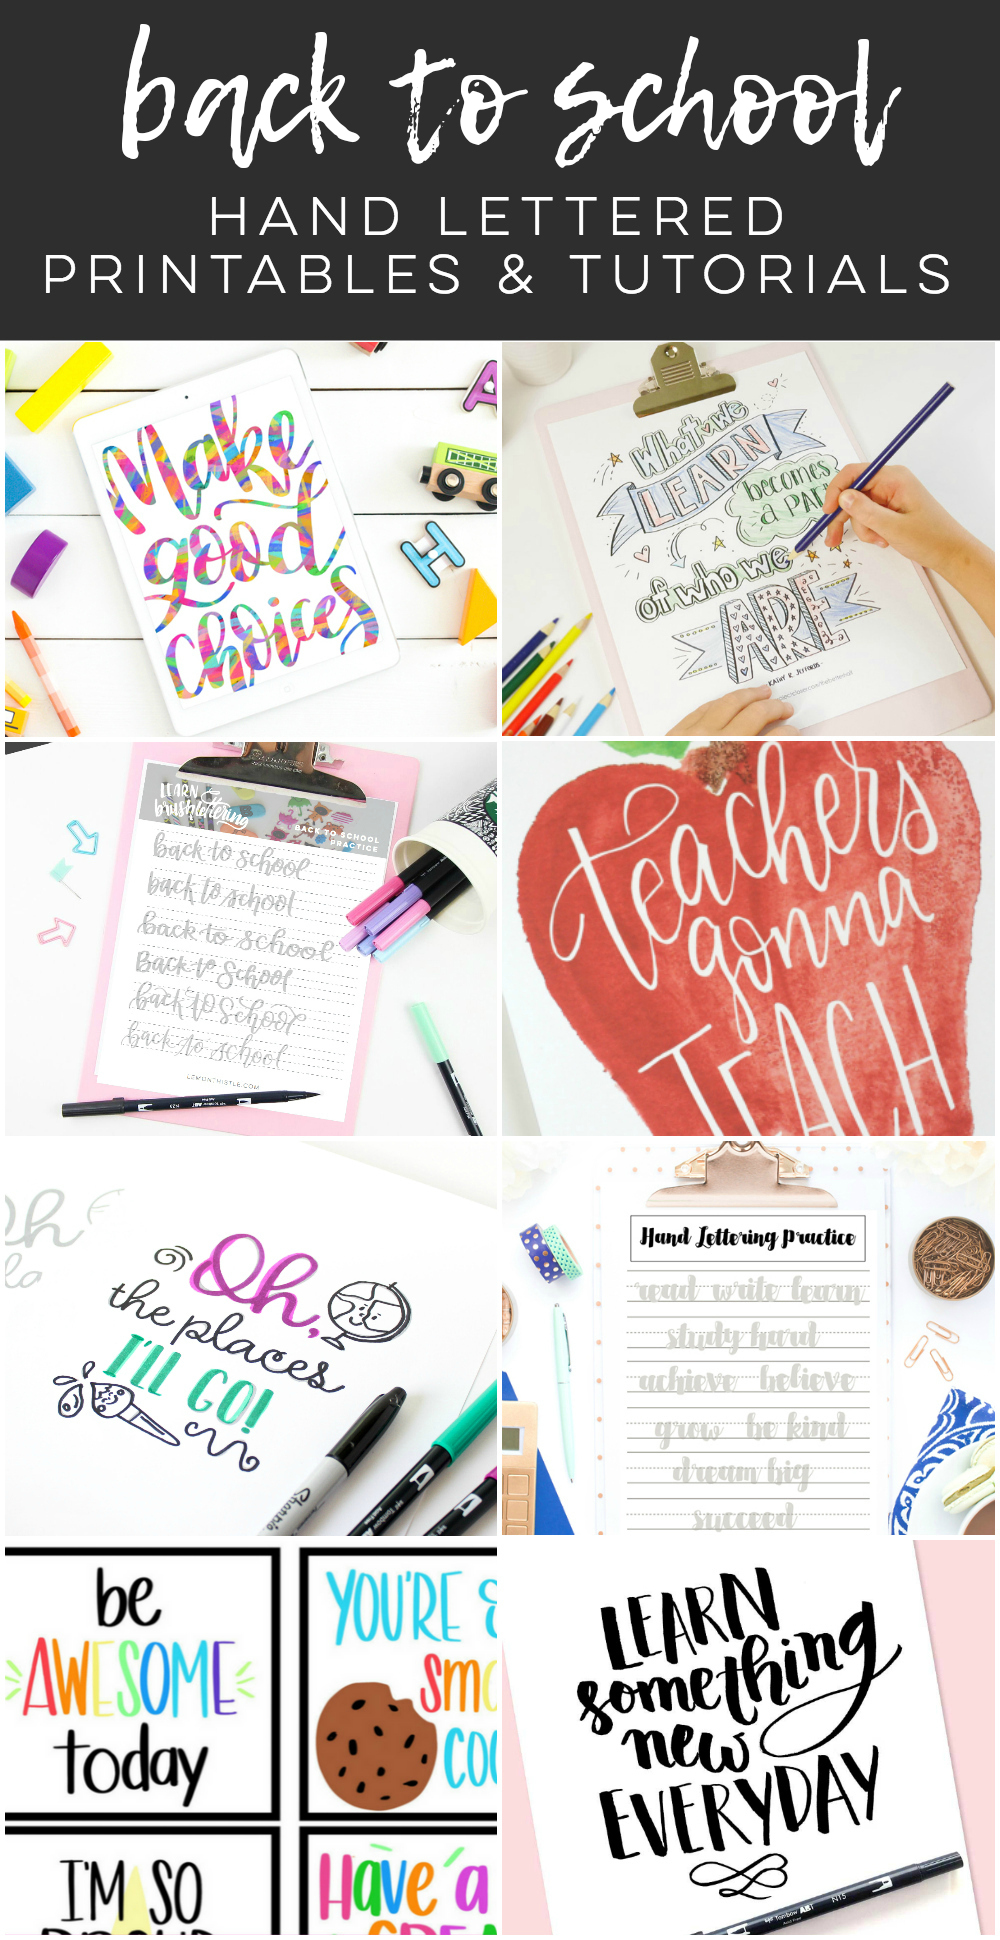 back to school
HAND LETTERED
PRINTABLES & TUTORIALS
Make
good
choices
What we
LEARN
becomes
a PART
of who we
ARE
KATHY R. JEFFORDS
A
H
LEARN
brushlettering
BACK TO SCHOOL
PRACTICE
back to school
back to school
back to school
Back to School
back to school
back to school
LEMONTHISTLE.COM
N25
teachers
gonna
TEACH
Oh
Oh,
the places
I'LL GO!
Sharpie
Hand Lettering Practice
read write learn
study hard
achieve believe
grow be kind
dream big
succeed
be
AWESOME
today
YOU'RE
I'M SO
HAVE a
LEARN
something
new
EVERYDAY
Tombow ABT
N15